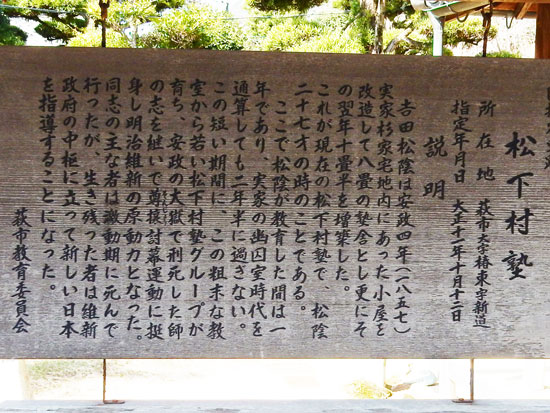 松下村塾
所在地 萩市大字椿東字新道
指定年月日 大正十一年十月十二日
説明
吉田松陰は安政四年(一八五七)
実家杉家宅地内にあった小屋を
改造して八畳の塾舎とし更にそ
の翌年十畳半を増築した。
これが現在の松下村塾で、松陰
二十七才の時のことである。
ここで松陰が教育した間は一
年であり、実家の幽囚室時代を
通算しても二年半に過ぎない。
この短い期間に、この粗末な教
室から若い松下村塾グループが
育ち、安政の大獄で刑死した師
の志を継いで尊攘討幕運動に挺
身し明治維新の原動力となった。
同志の主な者は激動期に死んで
行ったが、生き残った者は維新
政府の中枢に立って新しい日本
を指導することになった。
萩市教育委員会